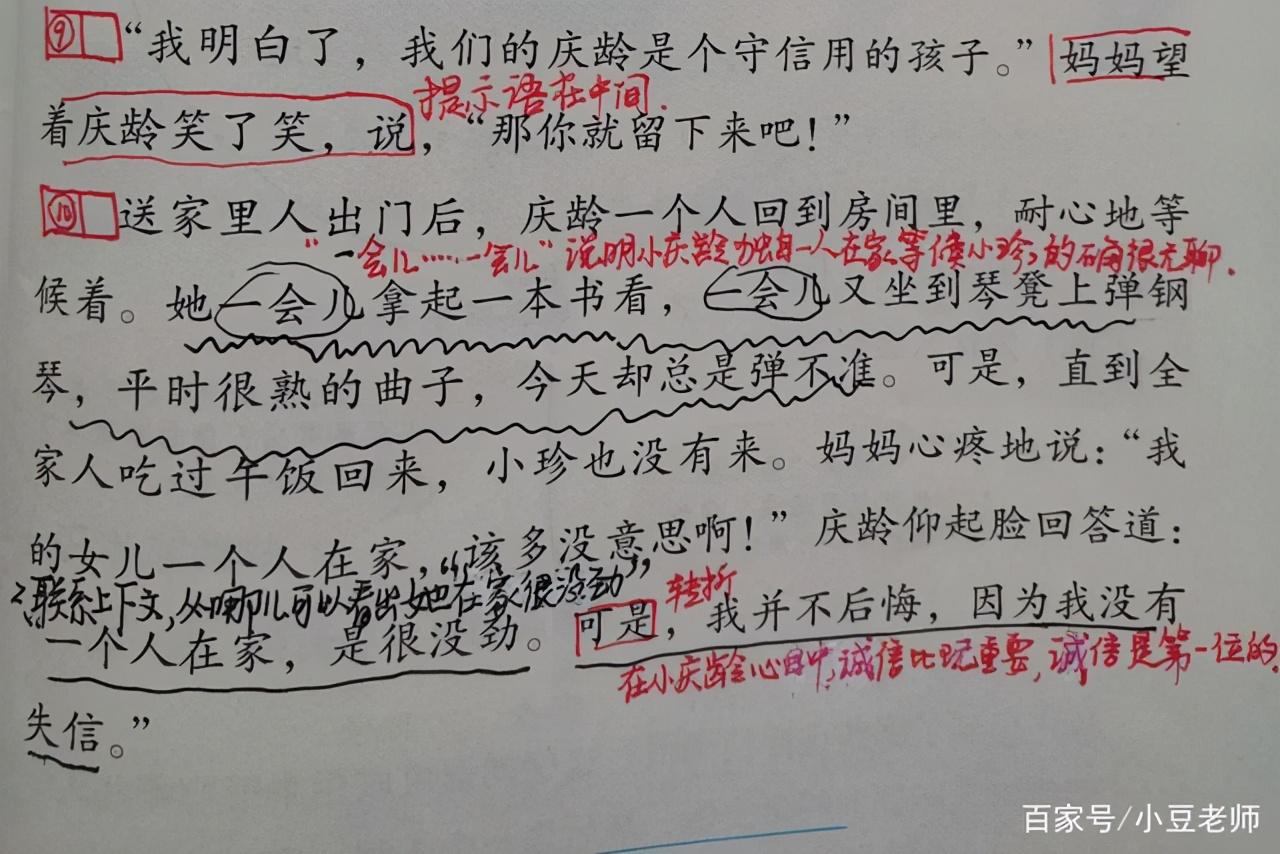 ⑨ “我明白了，我们的庆龄是个守信用的孩子。”妈妈望
提示语在中间.
着庆龄笑了笑，说，“那你就留下来吧！”
⑩ 送家里人出门后，庆龄一个人回到房间里，耐心地等
“一会儿……一会儿”说明小庆龄独自一人在家等候小珍,的确很无聊.
候着。她一会儿拿起一本书看，一会儿又坐到琴凳上弹钢
琴，平时很熟的曲子，今天却总是弹不准。可是，直到全
家人吃过午饭回来，小珍也没有来。妈妈心疼地说：“我
的女儿一个人在家，该多没意思啊！”庆龄仰起脸回答道：
2、联系上下文,从哪儿可以看出她“在家很没劲”
转折
一个人在家，是很没劲。可是，我并不后悔，因为我没有
在小庆龄心目中,诚信比玩重要,诚信是第一位的.
失信。”
百家号/小豆老师